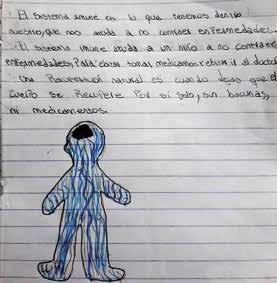 El sistema inmune es lo que tenemos dentro
nuestro, que nos ayuda a no contraer enfermedades.
El sistema inmune ayuda a un niño a no contraer
enfermedades, Para tomar medicamos ir al doctor
Una Recuperación natural es cuando dejas que el
cuerpo se Recupere Por si solo, sin bacunas,
ni medicamentos.